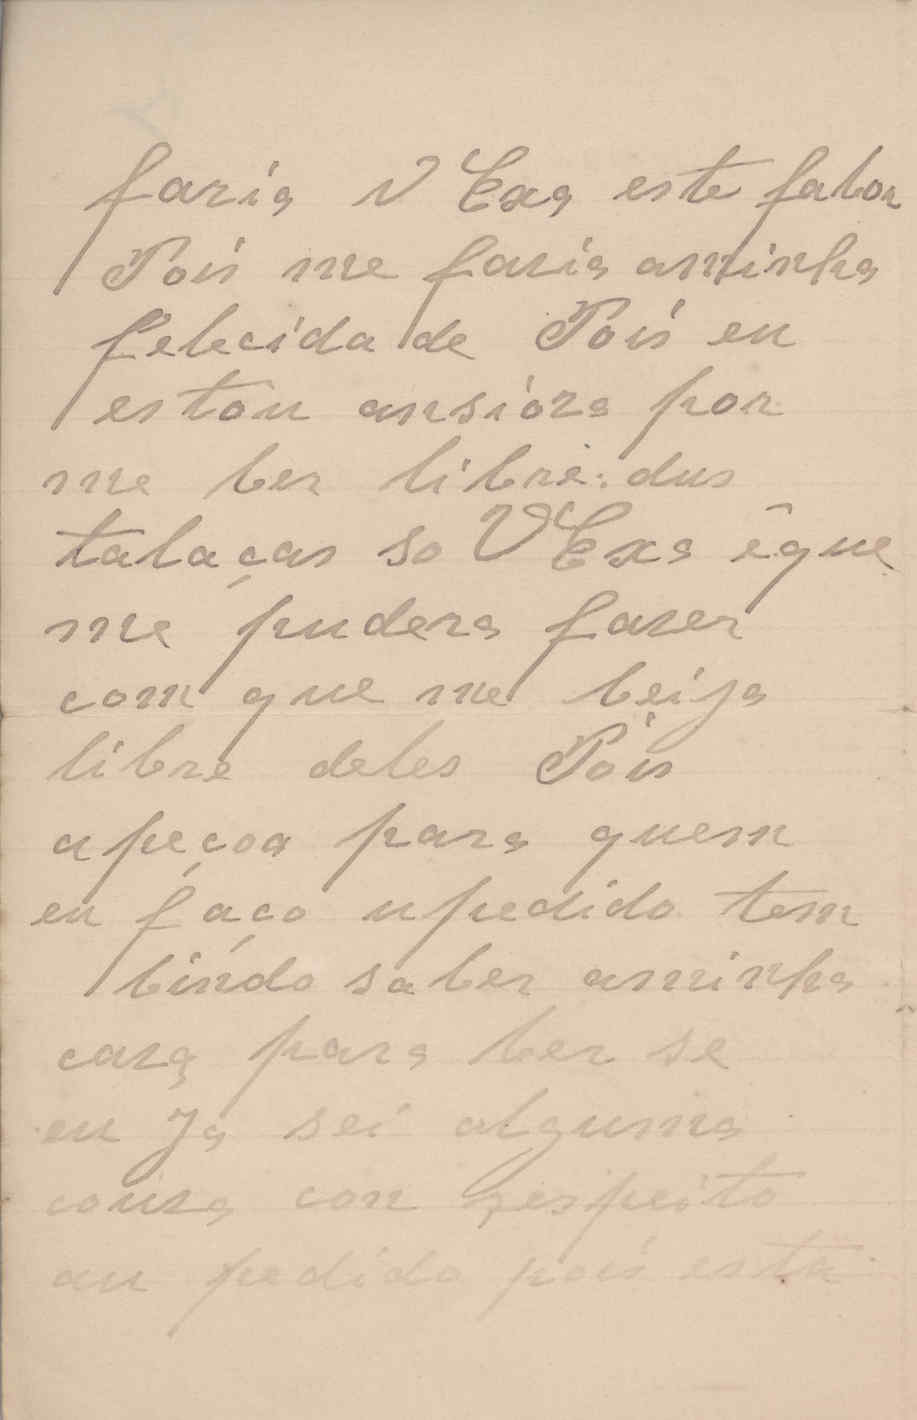 faria V Exa este fabor
Pois me faria aminha
felecidade Pois eu
estou ansioza por
me ber libre dus
talaças so VExa êque
me pudera fazer
com que me beija
libre deles Pois
apeçoa para quem
eu faço upedido tem
bindo saber aminha
caza para ber se
eu Ja sei alguma
couza con respeito
au pedido pois esta